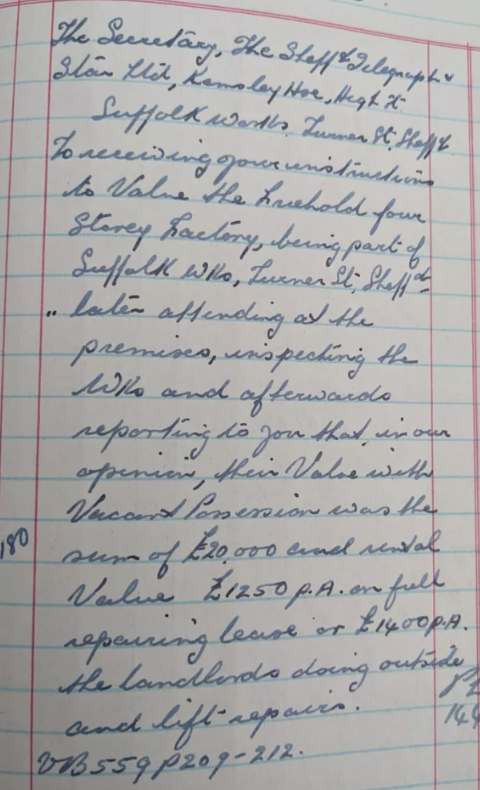 The Secretary, The Sheffd Telegraph &
Star Ltd, Kemsley Hse, High St
Suffolk Works, Turner St, Sheffd
To receiving your instructions
to Value the freehold four
Storey Factory, being part of
Suffolk Wks, Turner St, Sheffd
" later attending at the
premises, inspecting the
Wks and afterwards
reporting to you that, in our
opinion, their Value with
Vacant Possession was the
180
sum of £20,000 and rental
Value £1250 p.A. on full
repairing lease or £1400 p.A.
the landlords doing outside
and lift repairs.
144
VB559 p209-212.